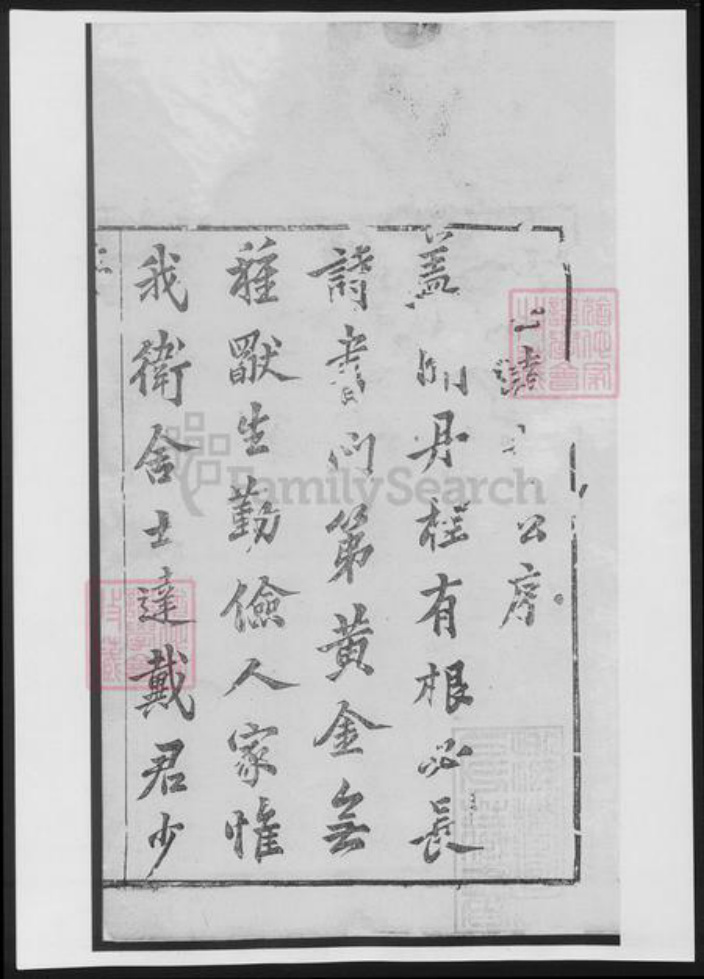 公序
蓋聞丹桂有根必長
詩書門第黃金無
種獸生勤儉人家惟
我衛舍士達戴君少
FamilySearch